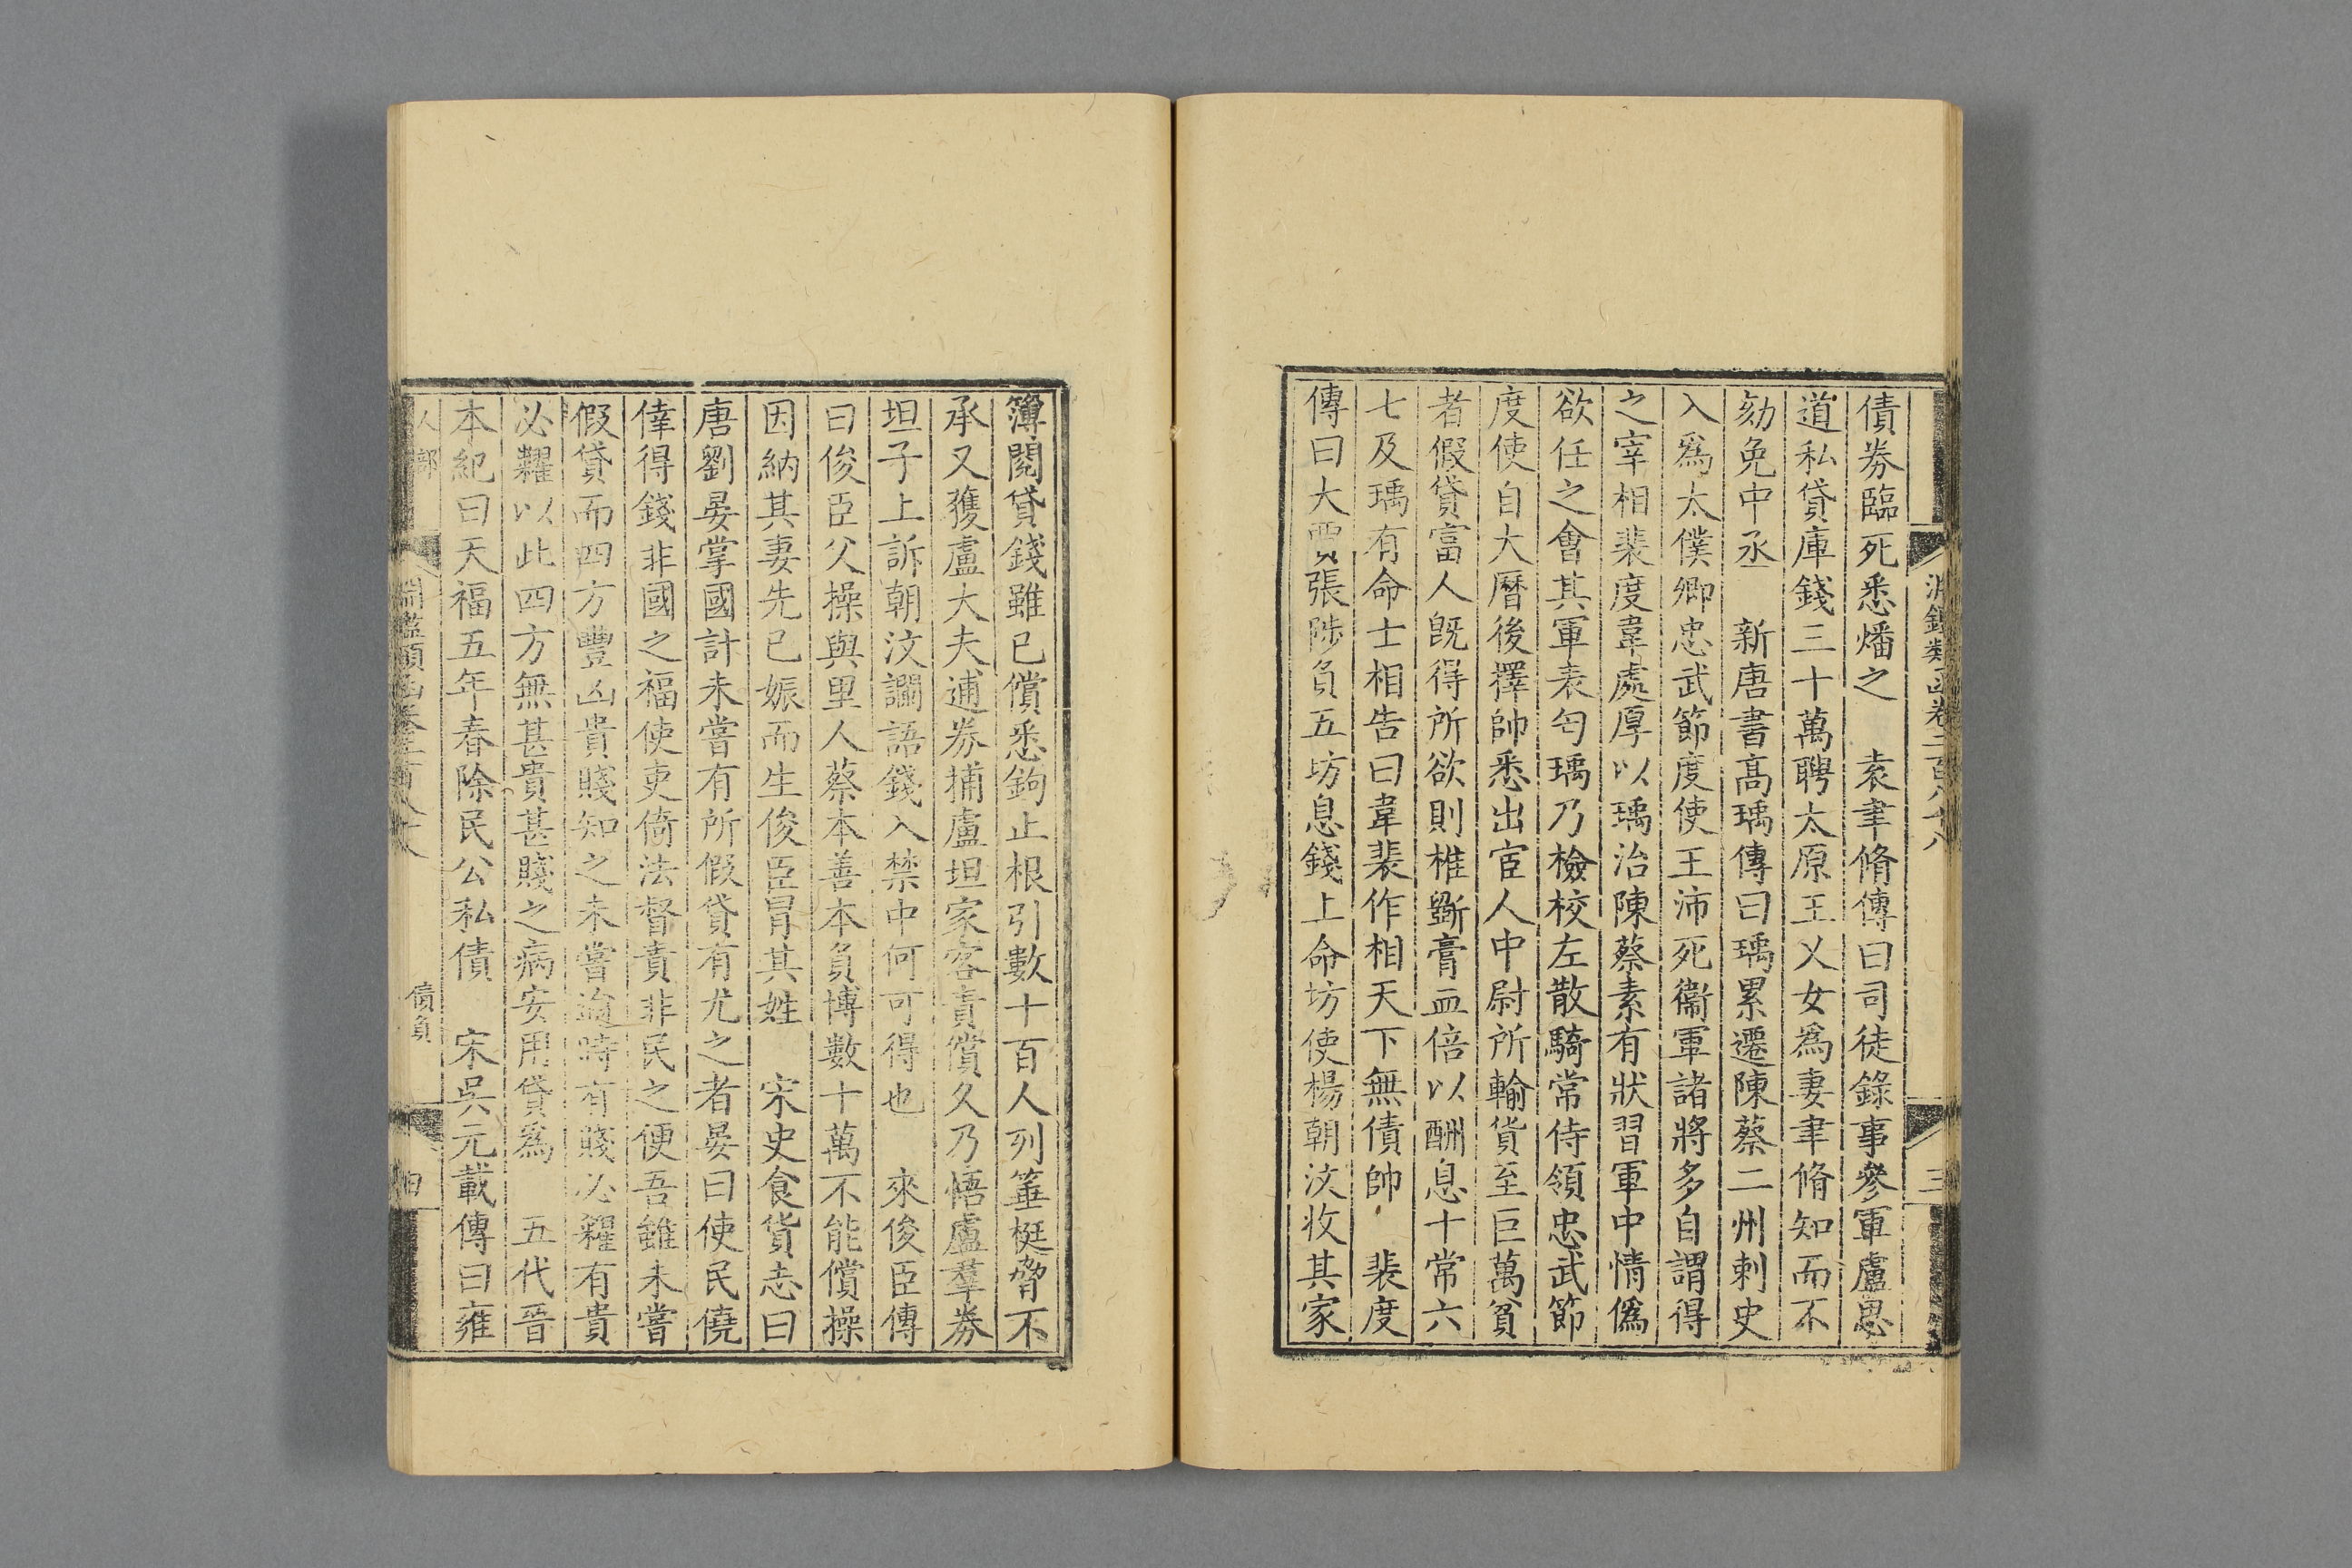 淵鑑類函卷二百八十八
三
債劵臨死悉燔之　袁聿脩傳曰司徒錄事參軍盧思
道私貸庫錢三十萬聘太原王乂女爲妻聿脩知而不
劾免中丞　新唐書高瑀傳曰瑀累遷陳蔡二州刺史
入爲太僕卿忠武節度使王沛死衞軍諸將多自謂得
之宰相裴度韋處厚以瑀治陳蔡素有狀習軍中情僞
欲任之會其軍表匄瑀乃檢校左散騎常侍領忠武節
度使自大曆後擇帥悉出宦人中尉所輸貨至巨萬貧
者假貸富人旣得所欲則椎斵膏血倍以酬息十常六
七及瑀有命士相告曰韋裴作相天下無債帥　裴度
傳曰大賈張陟負五坊息錢上命坊使楊朝汶收其家
簿閱貸錢雖已償悉鉤止根引數十百人列箠梃脅不
承又獲盧大夫逋劵捕盧坦家客責償久乃悟盧羣劵
坦子上訴朝汶讕語錢入禁中何可得也　來俊臣傳
曰俊臣父操與里人蔡本善本負博數十萬不能償操
因納其妻先已娠而生俊臣冒其姓　宋史食貨志曰
唐劉晏掌國計未嘗有所假貸有尤之者晏曰使民僥
倖得錢非國之福使吏倚法督責非民之便吾雖未嘗
假貸而四方豐凶貴賤知之未嘗逾時有賤必糴有貴
必糶以此四方無甚貴甚賤之病安用貸爲　五代晉
本紀曰天福五年春除民公私債　宋吳元載傳曰雍
人部
淵鑑類函卷二百八十八
債負